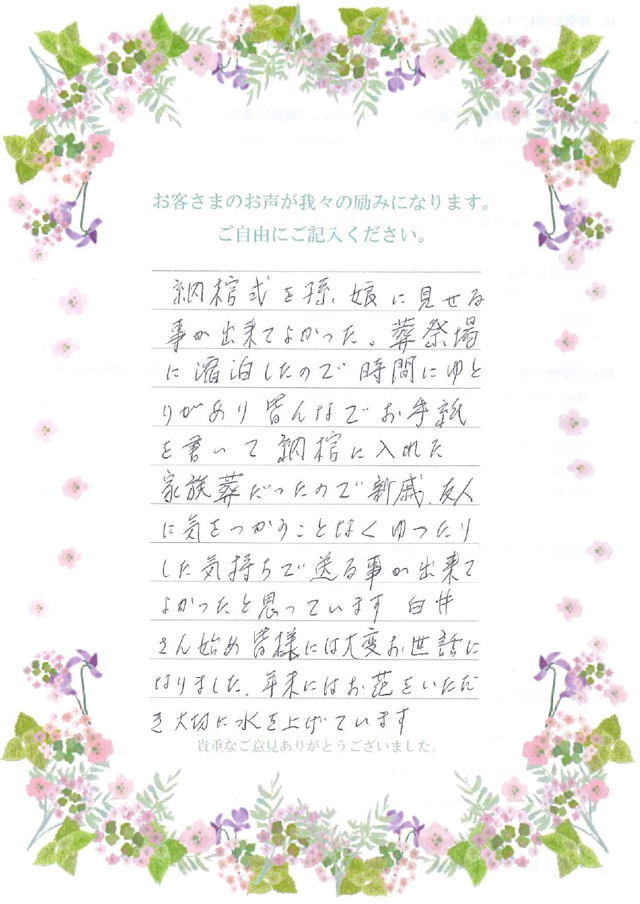 お客さまのお声が我々の励みになります。
ご自由にご記入ください。
納棺式を孫、娘に見せる
事が出来てよかった。葬祭場
に宿泊したので時間にゆと
りがあり皆んなでお手紙
を書いて納棺に入れた
家族葬だったので新戚、友人
に気をつかうことなくゆったり
した気持ちで送る事が出来て
よかったと思っています 白井
さん始め皆様には大変お世話に
なりました、年末にはお花をいただ
き大切に水を上げています
貴重なご意見ありがとうございました。